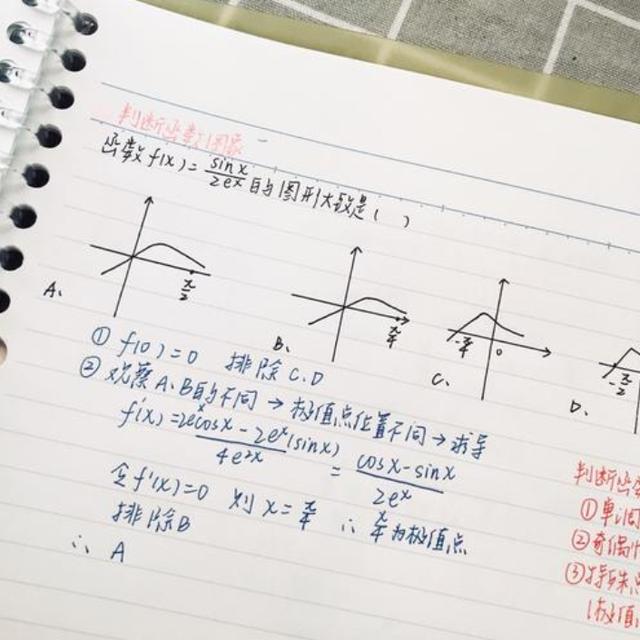 判断函数图象
函数f(x)=sinx/2eˣ的图形大致是( )
A.
π/2
B.
π/4
C.
-π/4
0
D.
-π/2
① f(0)=0 排除C.D
② 观察A.B的不同→极值点位置不同→求导
f'(x)=2eˣcosx-2eˣ(sinx)/4e²ˣ=cosx-sinx/2eˣ
令f'(x)=0 则x=π/4 ∴π/4为极值点
排除B
∴ A
判断函
①单调
②奇偶
③特殊点
(极值